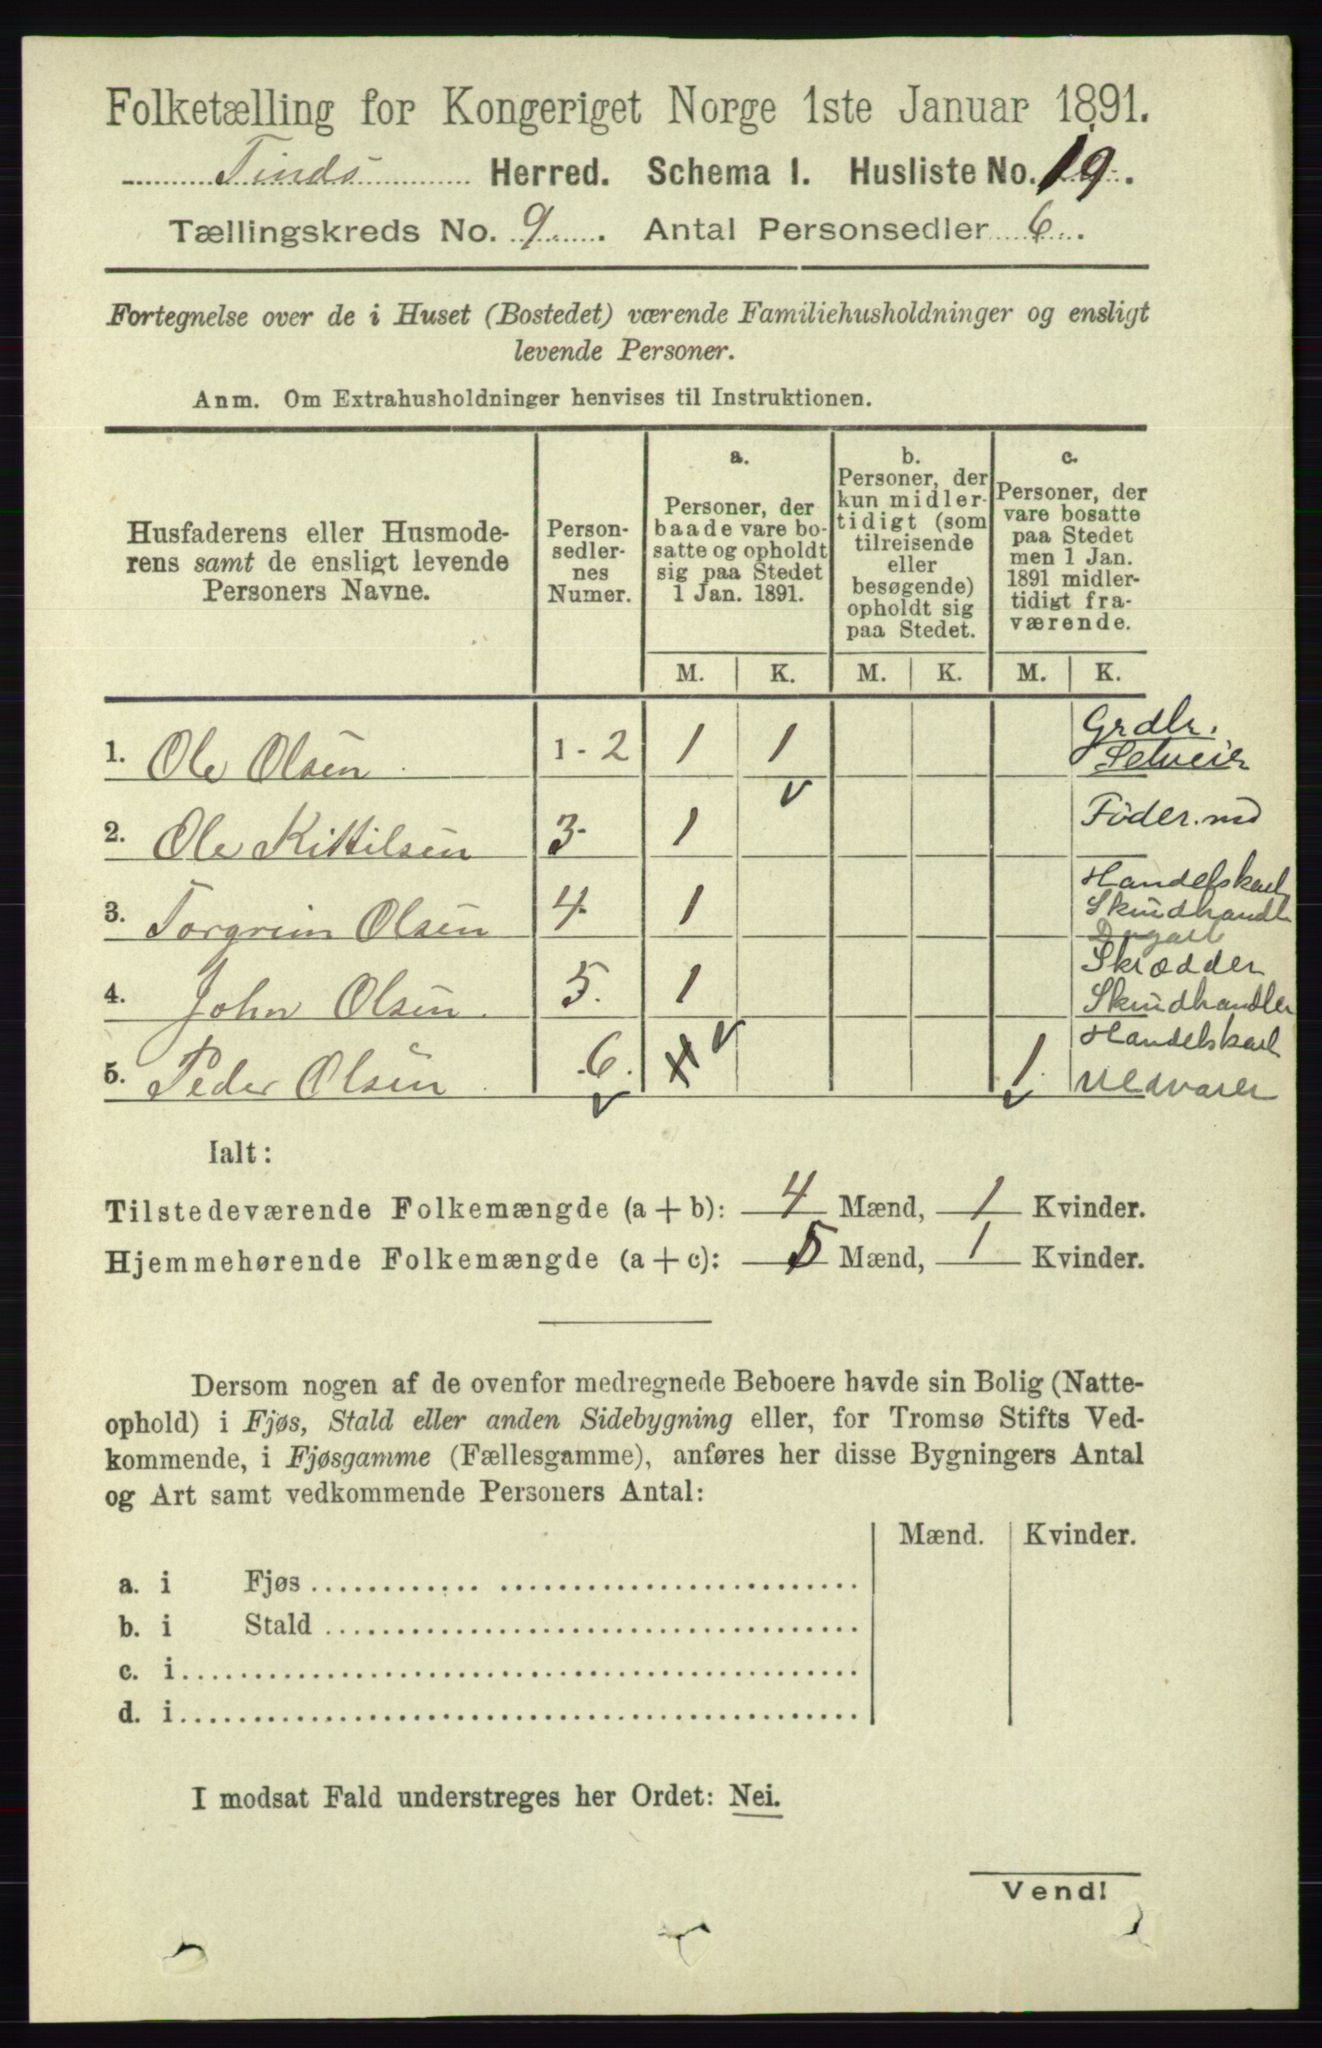 Folketælling for Kongeriget Norge 1ste Januar 1891.
Tinds Herred. Schema I. Husliste No. 19.
Tællingskreds No. 9. Antal Personsedler 6.
Fortegnelse over de i Huset (Bostedet) værende Familiehusholdninger og ensligt
levende Personer.
Anm. Om Extrahusholdninger henvises til Instruktionen.
Husfaderens eller Husmode-
rens samt de ensligt levende
Personers Navne.
Person-
sedler-
nes
Numer.
a.
Personer, der
baade vare bo-
satte og opholdt
sig paa Stedet
1 Jan. 1891.
b.
Personer, der
kun midler-
tidigt (som
tilreisende
eller
besøgende)
opholdt sig
paa Stedet.
c.
Personer, der
vare bosatte
paa Stedet
men 1 Jan.
1891 midler-
tidigt fra-
værende.
M. K. M. K. M. K.
1. Ole Olsen 1-2 1 1 Grdbr. Selveier
2. Ole Kittilsen 3 1 Føder.
3. Torgrim Olsen 4 1 Handelskarl Skindhandl
4. John Olsen 5. 1 Skrædder Skindhandler
5. Peder Olsen 6. 1 Handelskarl
Ialt:
Tilstedeværende Folkemængde (a + b): 4 Mænd, 1 Kvinder.
Hjemmehørende Folkemængde (a + c): 5 Mænd, 1 Kvinder.
Dersom nogen af de ovenfor medregnede Beboere havde sin Bolig (Natte-
ophold) i Fjøs, Stald eller anden Sidebygning eller, for Tromsø Stifts Ved-
kommende, i Fjøsgamme (Fællesgamme), anføres her disse Bygningers Antal
og Art samt vedkommende Personers Antal:
Mænd. Kvinder.
a. i Fjøs
b. i Stald
c. i
d. i
I modsat Fald understreges her Ordet: Nei.
Vend!